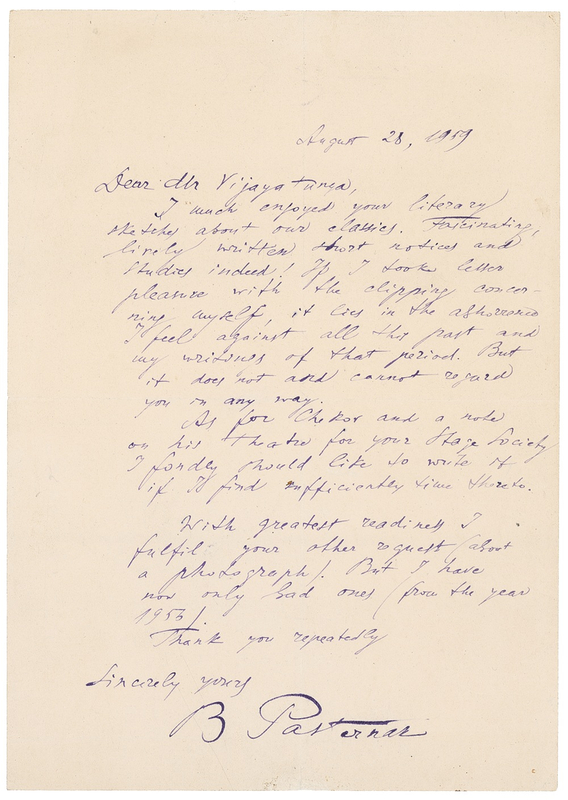 August 28, 1959
Dear Mr Vijaya Tunga,
I much enjoyed your literary
sketches about our classics. Fascinating,
lively written short notices and
studies indeed! If I took lesser
pleasure with the clipping concer-
ning myself, it lies in the abhorrence
I feel against all this past and
my writings of that period. But
it does not and cannot regard
you in any way.
As for Chekov and a note
on his Theatre for your Stage Society
I fondly should like to write it
if I find sufficiently time thereto.
With greatest readiness I
fulfil your other request (about
a photograph). But I have
now only bad ones (from the year
1956).
Thank you repeatedly
Sincerely yours
B Pasternak